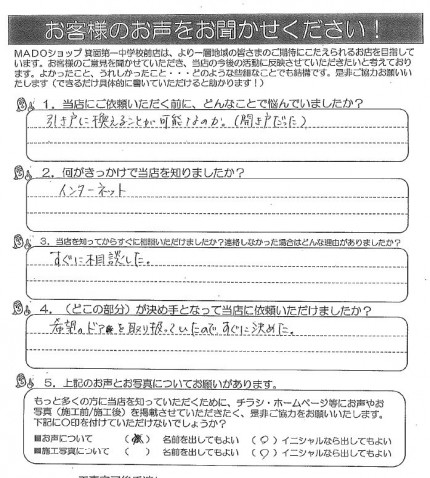 お客様のお声をお聞かせください！
MADOショップ 箕面第一中学校前店は、より一層地域の皆さまのご期待にこたえられるお店を目指して
います。お客様のご意見を聞かせていただき、当店の今後の活動に反映させていただきたいと考えており
ます。よかったこと、うれしかったこと・・・どのような些細なことでも結構です。是非ご協力お願いい
たします（できるだけ具体的に書いていただけると助かります！）
１．当店にご依頼いただく前に、どんなことで悩んでいましたか？
引き戸に換えることが可能なのか。（開き戸だった）
２．何がきっかけで当店を知りましたか？
インターネット
３．当店を知ってからすぐに相談いただけましたか？連絡しなかった場合はどんな理由がありましたか？
すぐに相談した。
４．（どこの部分）が決め手となって当店に依頼いただけましたか？
希望のドアを取り扱っていたので、すぐに決めた。
５．上記のお声とお写真についてお願いがあります。
もっと多くの方に当店を知っていただくために、チラシ・ホームページ等にお声やお
写真（施工前/施工後）を掲載させていただきたく、是非ご協力をお願いいたします。
下記に○印を付けていただけないでしょうか？
■お声について （ ） 名前を出してもよい （○）イニシャルなら出してもよい
■施工写真について （ ） 名前を出してもよい （○）イニシャルなら出してもよい